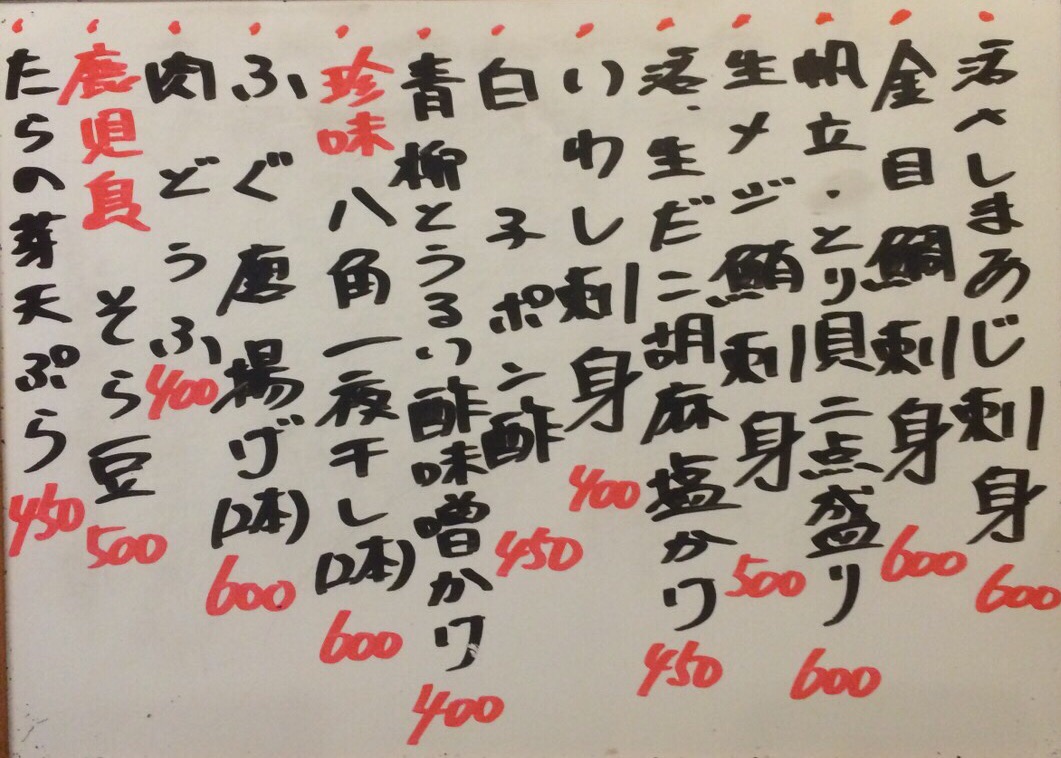 活〆しまあじ刺身 600
金目鯛刺身 600
帆立・とり貝二点盛り 600
生メジ鮪刺身 500
活、生だこ胡麻塩かけ 450
いわし刺身 400
白子ポン酢 450
青柳とうるい酢味噌かけ 400
珍味 八角一夜干し(2本) 600
ふぐ唐揚げ(2本) 600
肉どうふ 400
鹿児島 そら豆 500
たらの芽天ぷら 450